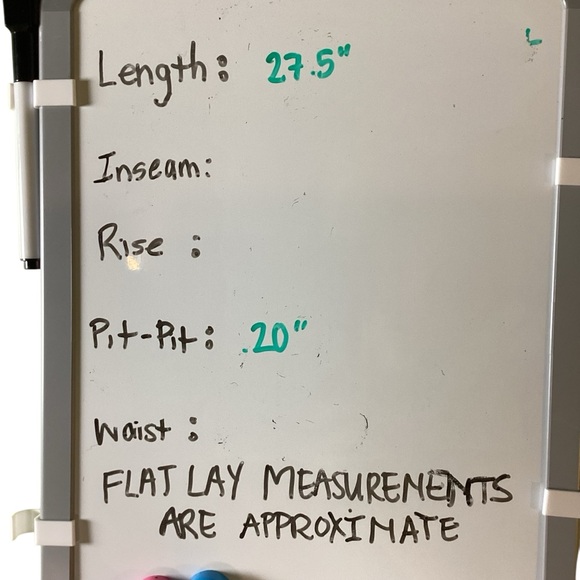 L
Length: 27.5"
Inseam:
Rise :
Pit-Pit: .20"
Waist :
FLAT LAY MEASUREMENTS
ARE APPROXIMATE